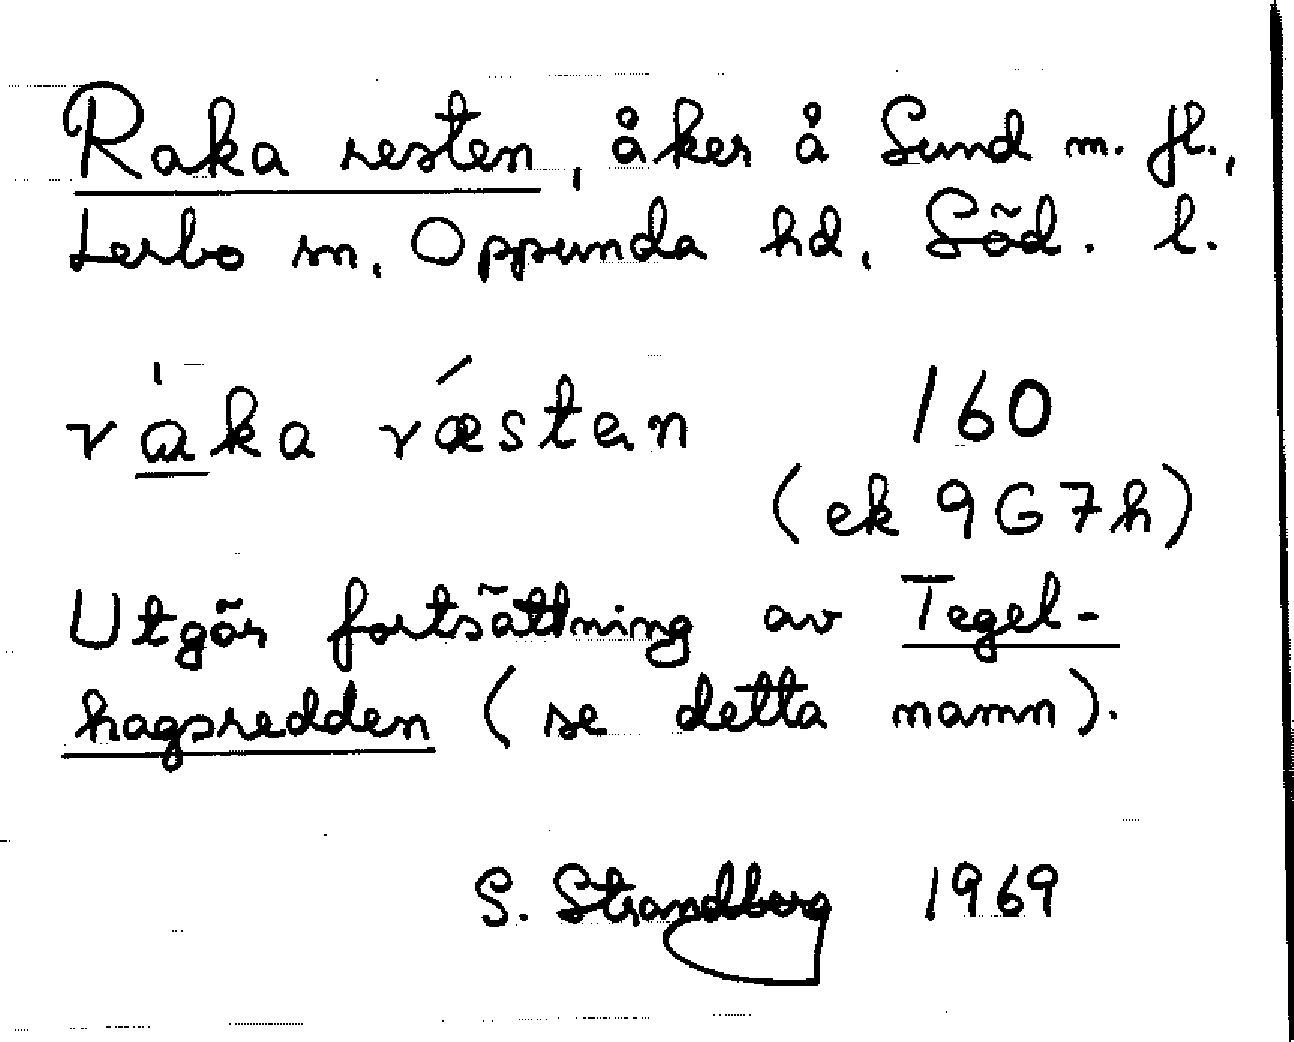 Raka resten, åker å Sund m. fl.,
Lerbo sn, Oppunda hd, Söd. l.
ràka rǽsten 160
(ek 9G7h)
Utgör fortsättning av Tegel-
hagsredden (se detta namn).
S. Strandberg 1969